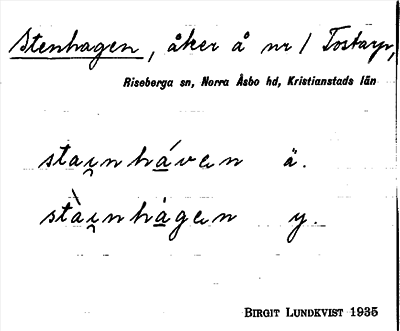 Stenhagen, åker å nr 1 Tostarp,
Riseberga sn, Norra Åsbo hd, Kristianstads län
stai̯nhá̱ven ä.
stài̯nhàgen y.
BIRGIT LUNDKVIST 1935